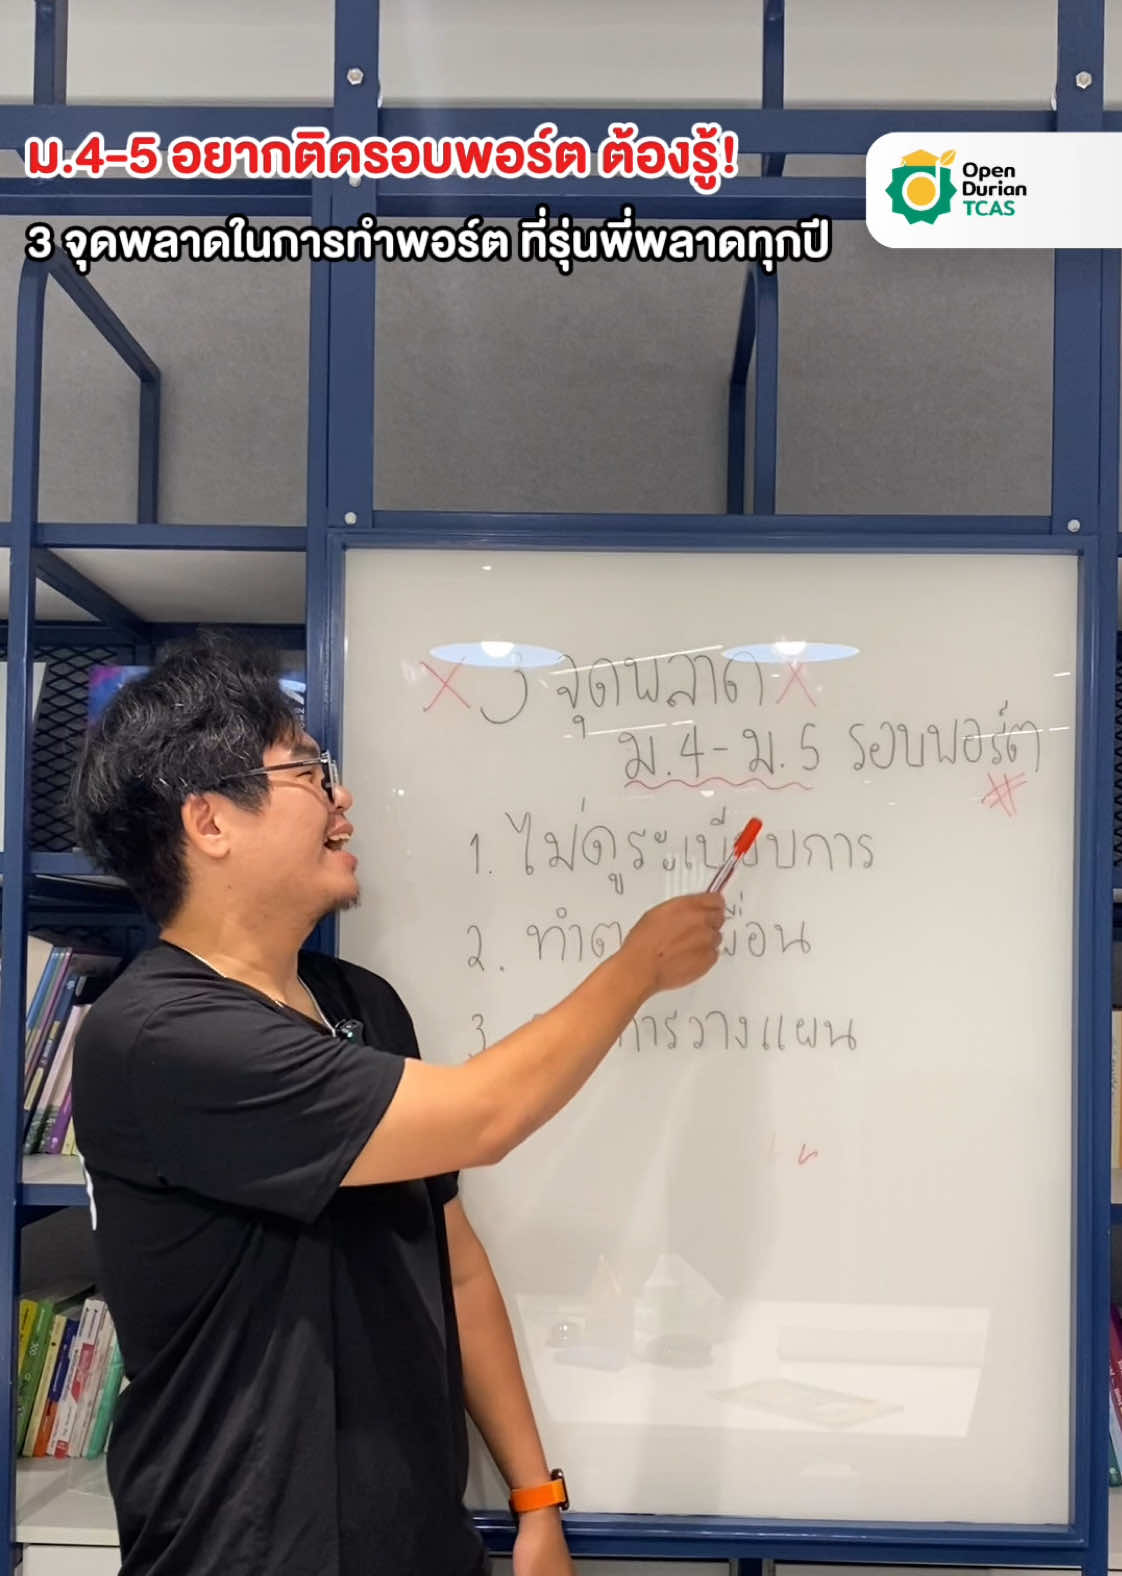 ม.4-5 อยากติดรอบพอร์ต ต้องรู้!
3 จุดพลาดในการทำพอร์ต ที่รุ่นพี่พลาดทุกปี
Open
Durian
TCAS
X 3 จุดพลาด X
ม.4 - ม.5 รอบพอร์ต
1. ไม่ดูระเบียบการ
2. ทำต
3. การวางแผน